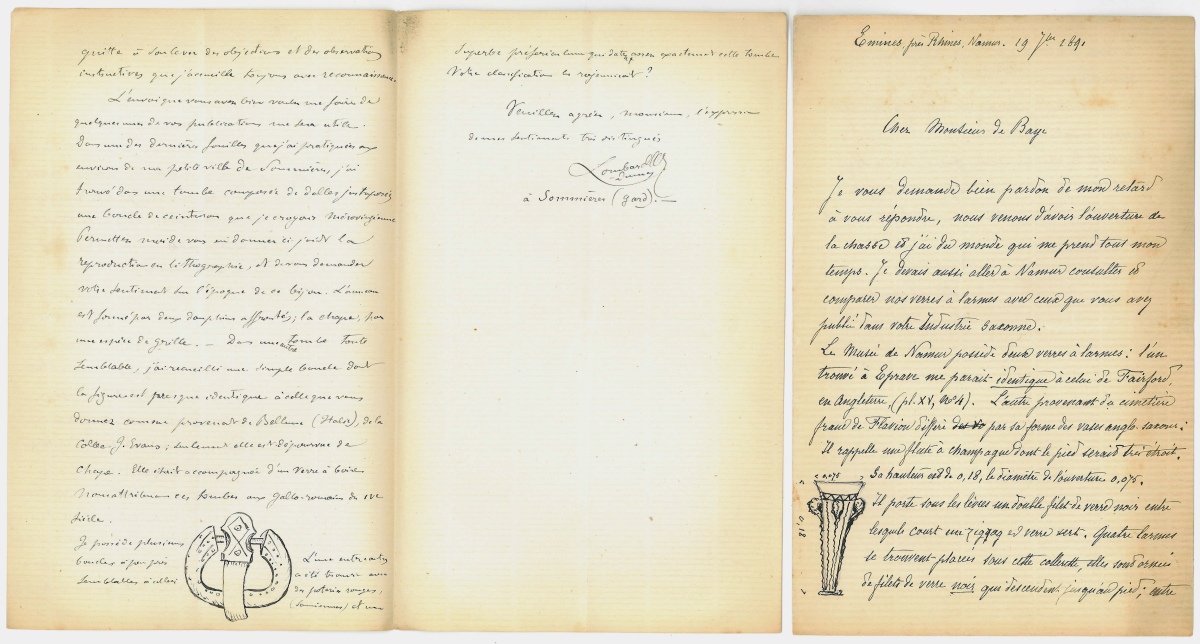 quitte à soulever des objections et des observations
instructives que j'accueille toujours avec reconnaissance.
L'envoi que vous avez bien voulu me faire de
quelques unes de vos publications me sera utile.
Dans une des dernières fouilles que j'ai pratiquées aux
environs de ma petite ville de Sommières, j'ai
trouvé dans une tombe composée de dalles juxtaposées
une boucle de ceinturon que je croyais mérovingienne
Permettez moi de vous en donner ci joint la
reproduction en lithographie, et de vous demander
votre sentiment sur l'époque de ce bijou. L'anneau
est formé par deux dauphins affrontés; la chape, par
une espèce de grille. — Dans une autre tombe toute
semblable, j'ai recueilli une simple boucle dont
la figure est presque identique à celle que vous
donnez comme provenant de Bellune (Italie), de la
Collon J. Evans, seulement elle est dépourvue de
Chape. Elle était accompagnée d'un verre à boire
Nous attribuons ces tombes aux Gallo-romains du IVe
siècle.
Je possède plusieurs
boucles à peu près
semblables à celles
L'une entre autres
a été trouvée avec
des poteries rouges,
(samiennes) et un
Superbe préfericulum qui date assez exactement cette tombe
Votre classification les rajeunirait?
Veuillez agréer, monsieur, l'expression
de mes sentiments très distingués
Lombard
Dumas
à Sommières (Gard). —
Emines, près Rhisnes, Namur. 19 7bre 1890
Cher Monsieur de Baye
Je vous demande bien pardon de mon retard
à vous répondre, nous venons d'avoir l'ouverture de
la chasse et j'ai du monde qui me prend tout mon
temps. Je devais aussi aller à Namur consulter et
comparer nos verres à larmes avec ceux que vous avez
publié dans votre Industrie saxonne.
Le Musée de Namur possède deux verres à larmes: l'un
trouvé à Eprave me parait identique à celui de Fairford,
en Angleterre, (pl. XV, No 4). L'autre provenant du cimetière
franc de Flavion diffère par sa forme des vases anglo-saxons:
Il rappelle une flute à champagne dont le pied serait très étroit.
Sa hauteur est de 0,18, le diamètre de l'ouverture 0,075.
Il porte sous les lèvres un double filet de verre noir entre
lesquels court un zigzag est verre vert. Quatre larmes
se trouvent placées sous cette collerette, elles sont ornées
de filets de verre noir qui descendent jusqu'au pied; entre
0,075
0,18